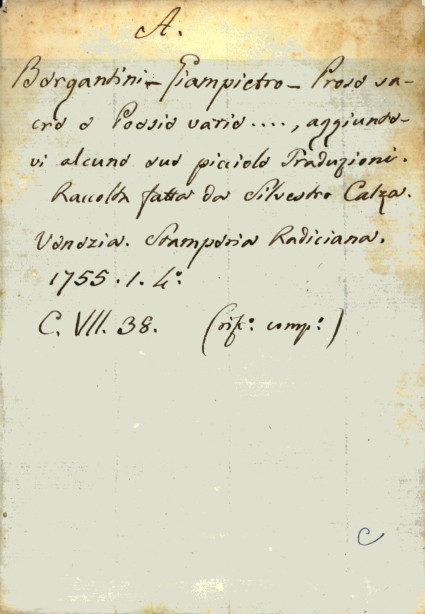 A.
Bergantini - Giampietro - Prose sa-
cre e Poesie varie ...., aggiunte-
vi alcune sue picciole Traduzioni.
Raccolta fatta da Silvestro Calza.
Venezia. Stamperia Radiciana.
1755. 1. 4°.
C. VII. 38. (rif°: comp°:)
C